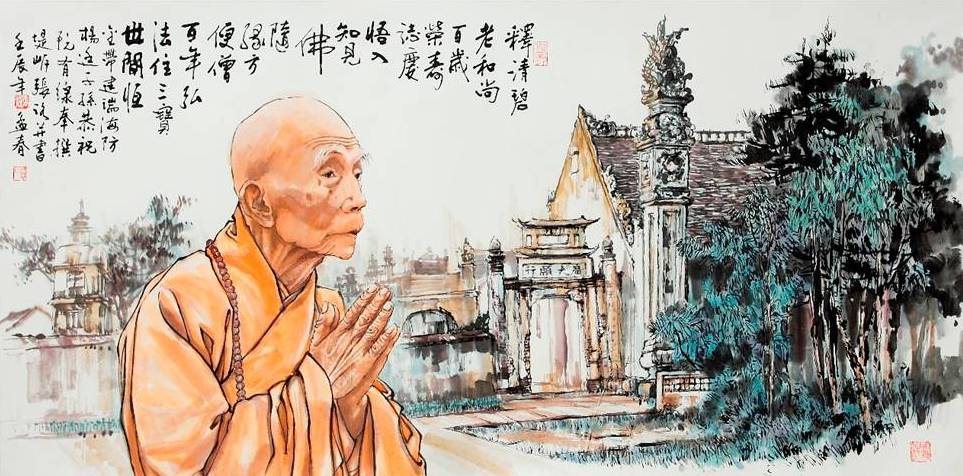 釋清碧
老和尚
百歲
榮壽
誌慶
悟入
知見
佛
隨
緣方
便僧
百年弘
法住三寶
世間恆
海防
孫恭祝
阮有緣奉撰
堤岸張 并書
壬辰年孟春